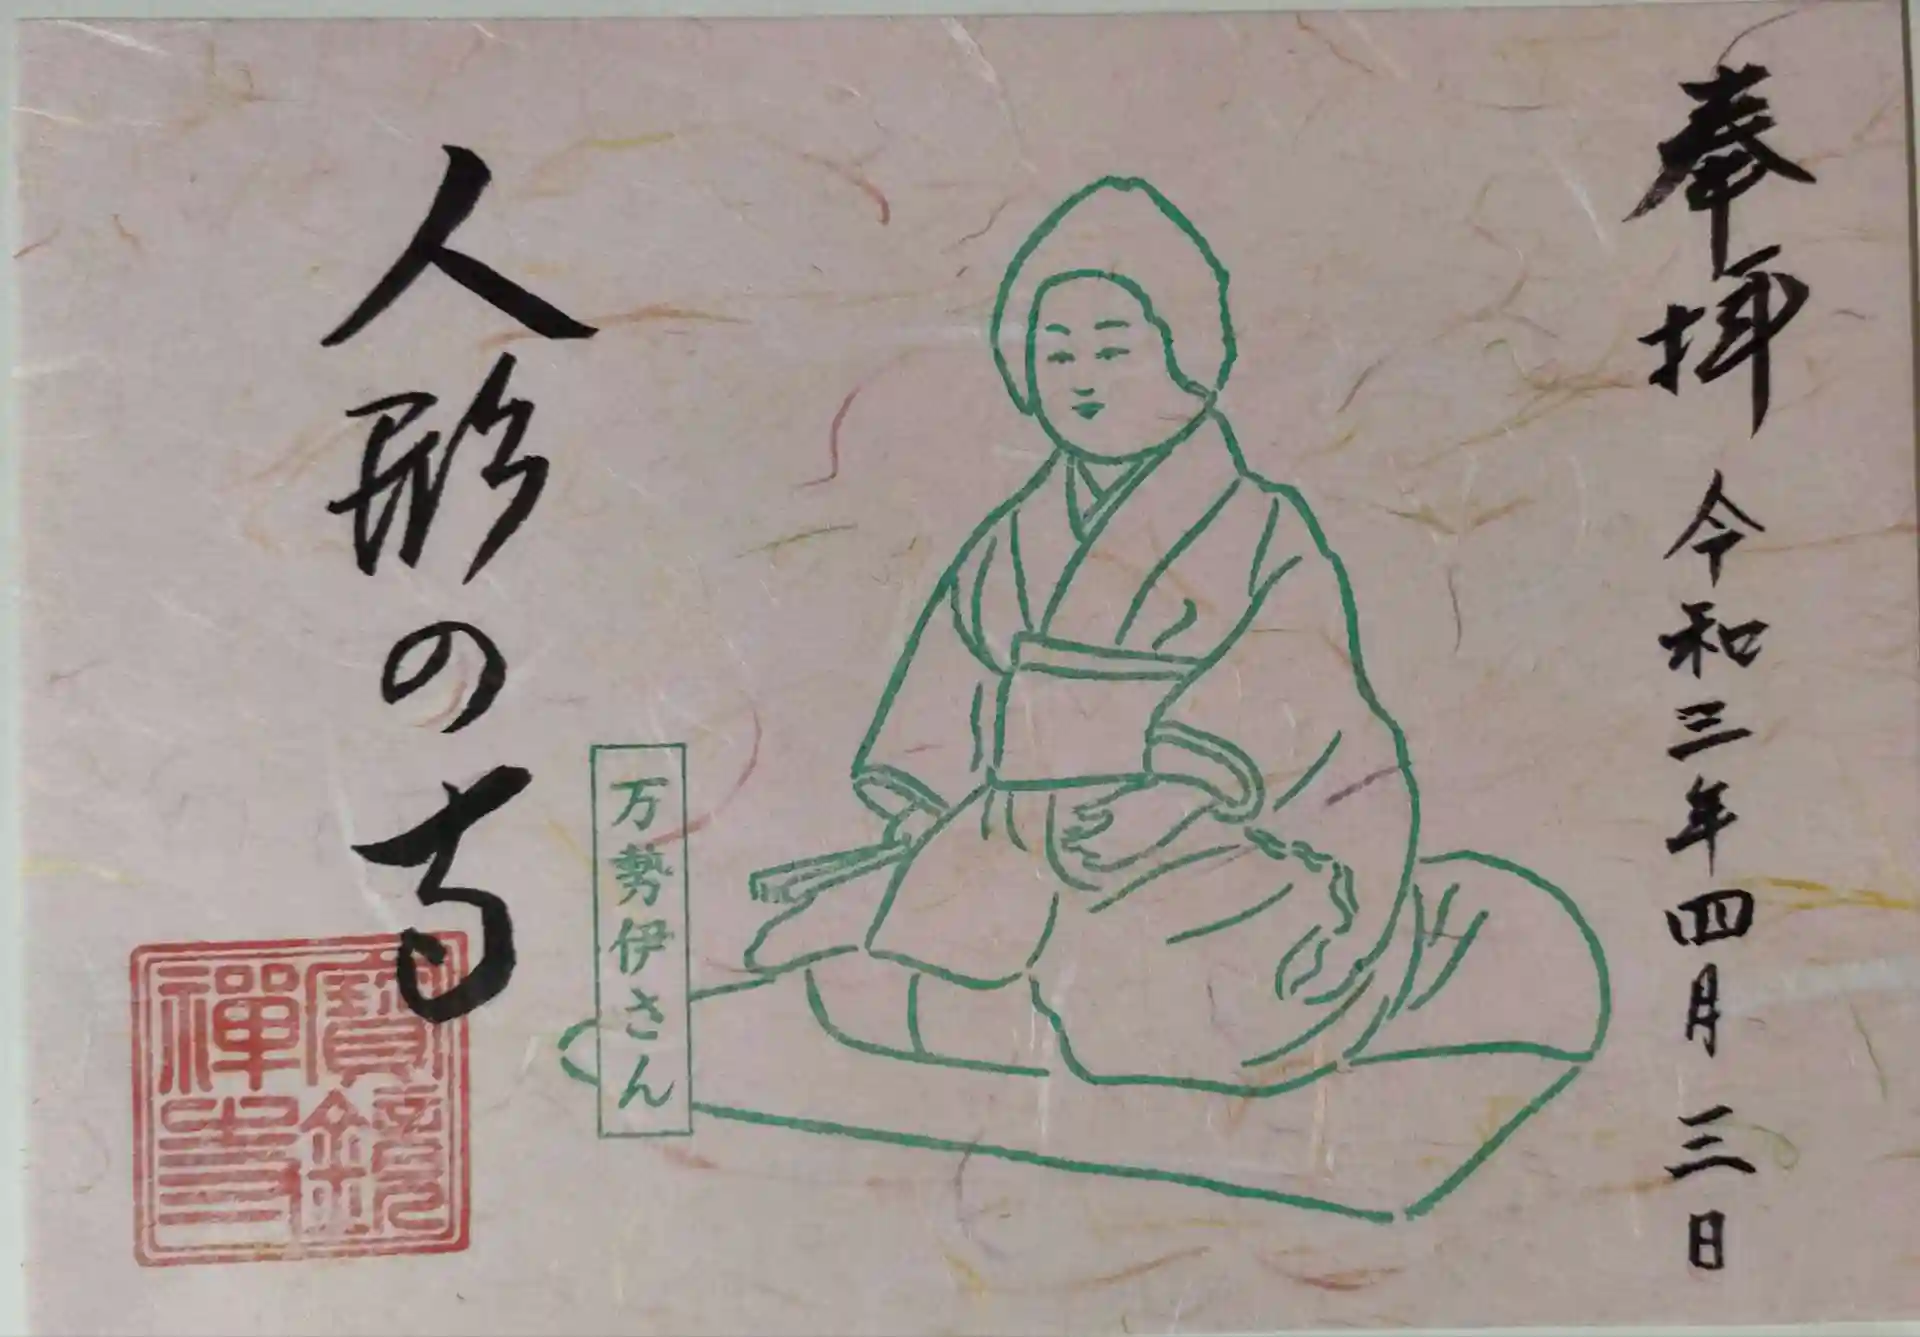 奉拝
令和三年四月三日
万勢伊さん
人形の寺
寶鏡
禅寺